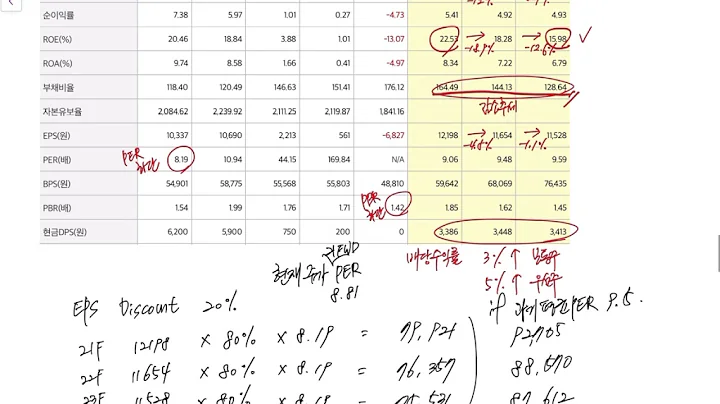 순이익률 7.38 5.97 1.01 0.27 -4.73 5.41 4.92 4.93
ROE(%) 20.46 18.84 3.88 1.01 -13.07 22.53 → 18.28 → 15.98 ✓
-18.9% -12.6%
ROA(%) 9.74 8.58 1.66 0.41 -4.97 8.34 7.22 6.79
부채비율 118.40 120.49 146.63 151.41 176.12 164.49 144.13 128.64
감소추세
자본유보율 2,084.62 2,239.92 2,111.25 2,119.87 1,841.16
EPS(원) 10,337 10,690 2,213 561 -6,827 12,198 → 11,654 → 11,528
-4.8% -1.1%
PER 하단
PER(배) 8.19 10.94 44.15 169.84 N/A 9.06 9.48 9.59
BPS(원) 54,901 58,775 55,568 55,803 48,810 59,642 68,069 76,435
PBR 하단
PBR(배) 1.54 1.99 1.76 1.71 1.42 1.85 1.62 1.45
현금DPS(원) 6,200 5,900 750 200 0 3,386 3,448 3,413
배당수익률 3%↑ 보통주
5%↑ 우선주
현재 주가 PER
8.81
EPS Discount 20%
if 과거 평균 PER 9.5.
21F 12198 × 80% × 8.19 = 79,921 92,705
22F 11654 × 80% × 8.19 = 76,357 88,570
23F 11528 × 80% × 8.19 = 75,531 87,612